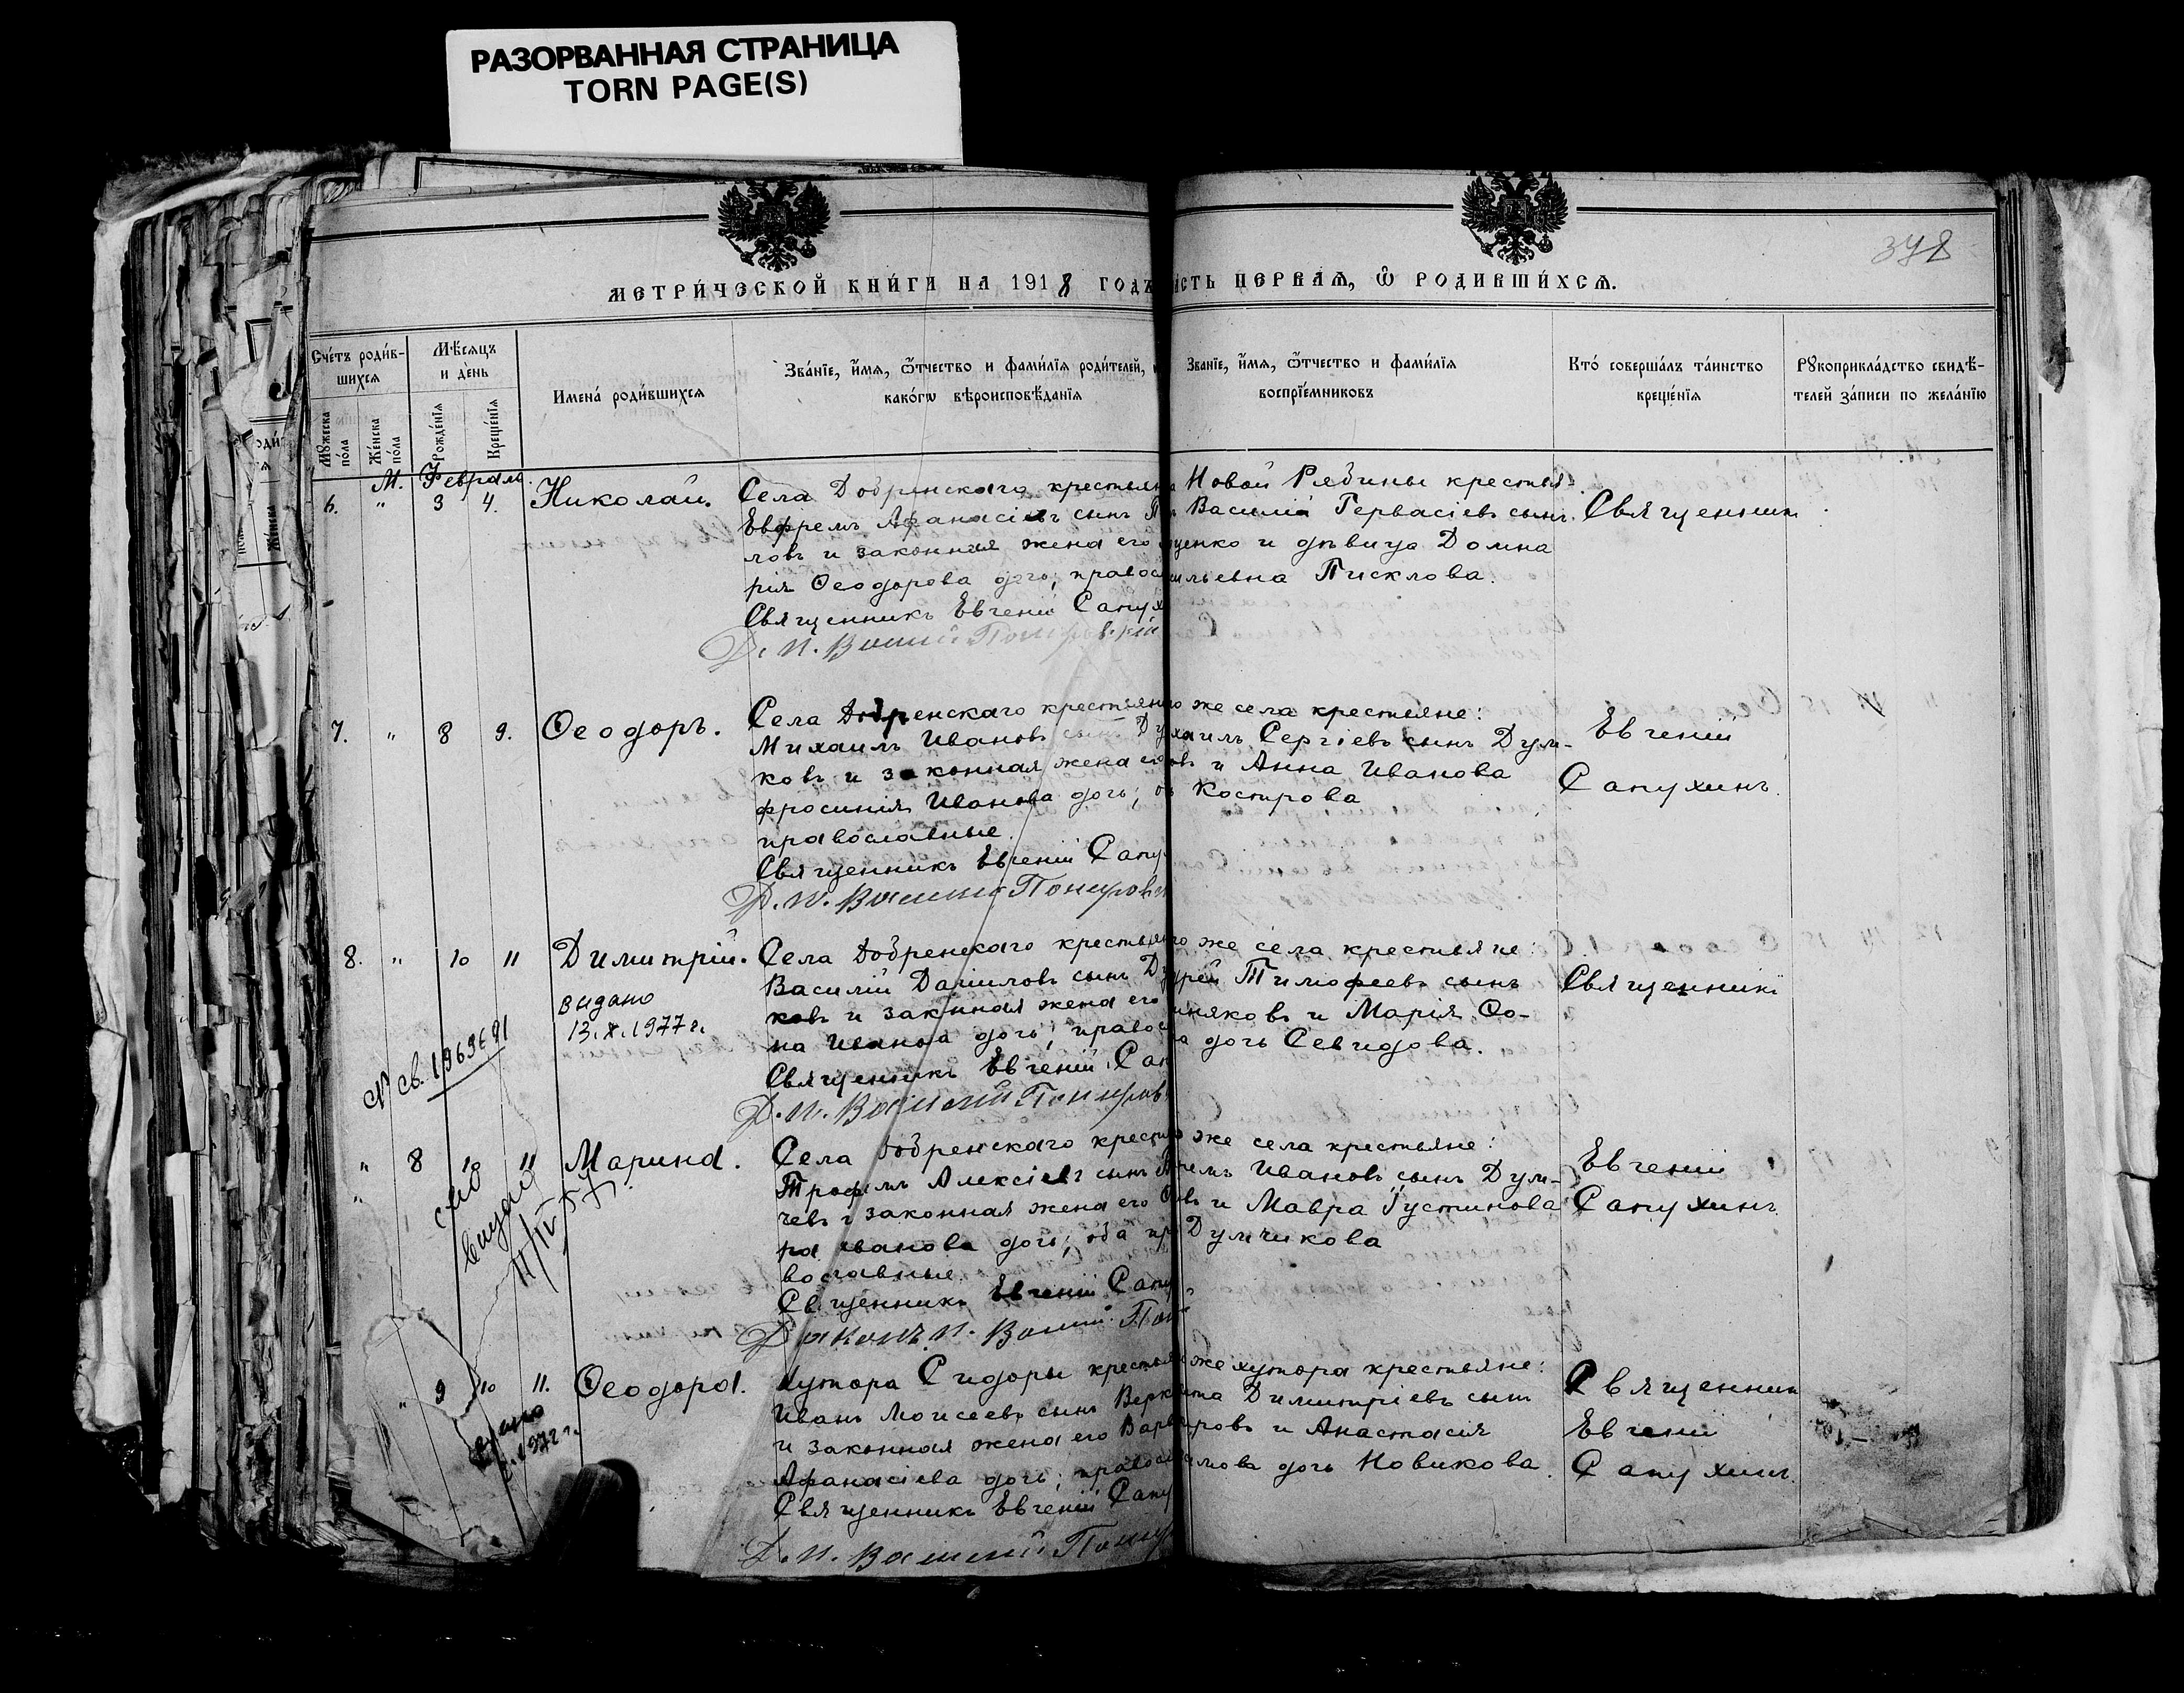 РАЗОРВАННАЯ СТРАНИЦА
TORN PAGE(S)
378
МЕТРИ́ЧЕСКОЙ КНИ́ГИ НА 1918 ГОДЪ
СТЬ ПЕРВАѦ, Ѿ РОДИВШИ́ХСѦ.
Сче́тъ роди́в-
шихсѧ
Мѣ́сѧцъ
и де́нь
Мꙋ́жеска
по́ла
Же́нска
по́ла
Рожде́нїѧ
Креще́нїѧ
Имена̀ роди́вшихсѧ
Зва́нїе, и҆́мѧ, ѻ҆́тчество и фами́лїѧ роди́телей,
како́гѡ вѣроисповѣ́данїѧ
Зва́нїе, и҆́мѧ, ѻ҆́тчество и фами́лїѧ
воспрїе́мниковъ
Кто́ соверша́лъ та́инство
креще́нїѧ
Рꙋкоприкла́дство свидѣ́-
телей за́писи по жела́нїю
М. Февраль.
6. " 3 4. Николай.
Села Добринскаго крестьян
Евфремъ Афанасіевъ сынъ
ловъ и законная жена его
рія Ѳеодорова дочь; правос
Священникъ Евгеній Сапух
Новой Рябины крестья-
Василій Гервасіевъ сынъ
ценко и дѣвица Домна
ильевна Писклова.
Священник
7. " 8 9. Ѳеодоръ.
Села Добренскаго крестьян
Михаилъ Ивановъ сынъ Ду
ковъ и законная жена его
фросинія Иванова дочь;
православные.
Священникъ Евгеній Сапу
Д. п. Василій Понировс
же села крестьяне:
хаилъ Сергіевъ сынъ Дум-
овъ и Анна Иванова
Кострова
Евгеній
Сапухинъ.
8. " 10 11 Димитрій.
видано
13.X.1977г.
Св. 1969691
Села Добренскаго крестьян
Василій Даніиловъ сынъ Д
ковъ и законная жена его
на Иванова дочь; правос
Священникъ Евгеній Сап
Д. п. Василій Пониров
же села крестьяне:
дрей Тимофеевъ сынъ
няковъ и Марія Ѳо-
а дочь Севидова.
Священникъ
" 8 10 11 Марина.
11/IV 57
Села Добренскаго крест
Трофимъ Алексіевъ сынъ
чевъ и законная жена его
ра Иванова дочь; оба пр
вославные.
Священникъ Евгеній Сапу
Діаконъ п. Васил. Пон
же села крестьяне:
ремъ Ивановъ сынъ Дум-
овъ и Мавра Густинова
Думчикова
Евгеній
Сапухинъ
" 9 10 11. Ѳеодора.
1972г.
Хутора Сидоры крестья
Иванъ Моисеевъ сынъ Верк
и законная жена его Варв
Афанасіева дочь; правос
Священникъ Евгеній Сапу
Д. п. Василій Пониро
же хутора крестьяне:
ита Димитріевъ сын
ировъ и Анастасія
имова дочь Новикова.
Священник
Евгеній
Сапухинъ.